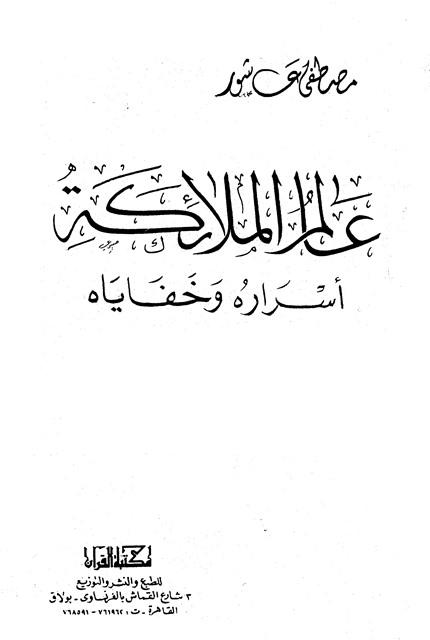 مصطفى عاشور
عَالَمُ الملَائِكَةِ
أسْرَارُه وَخَفَايَاه
مكتبة القرآن
للطبع والنشر والتوزيع
٣ شارع القماش بالفرنساوى - بولاق
القاهرة - ت : ٧٦١٩٦٢ - ٧٦٨٥٩١